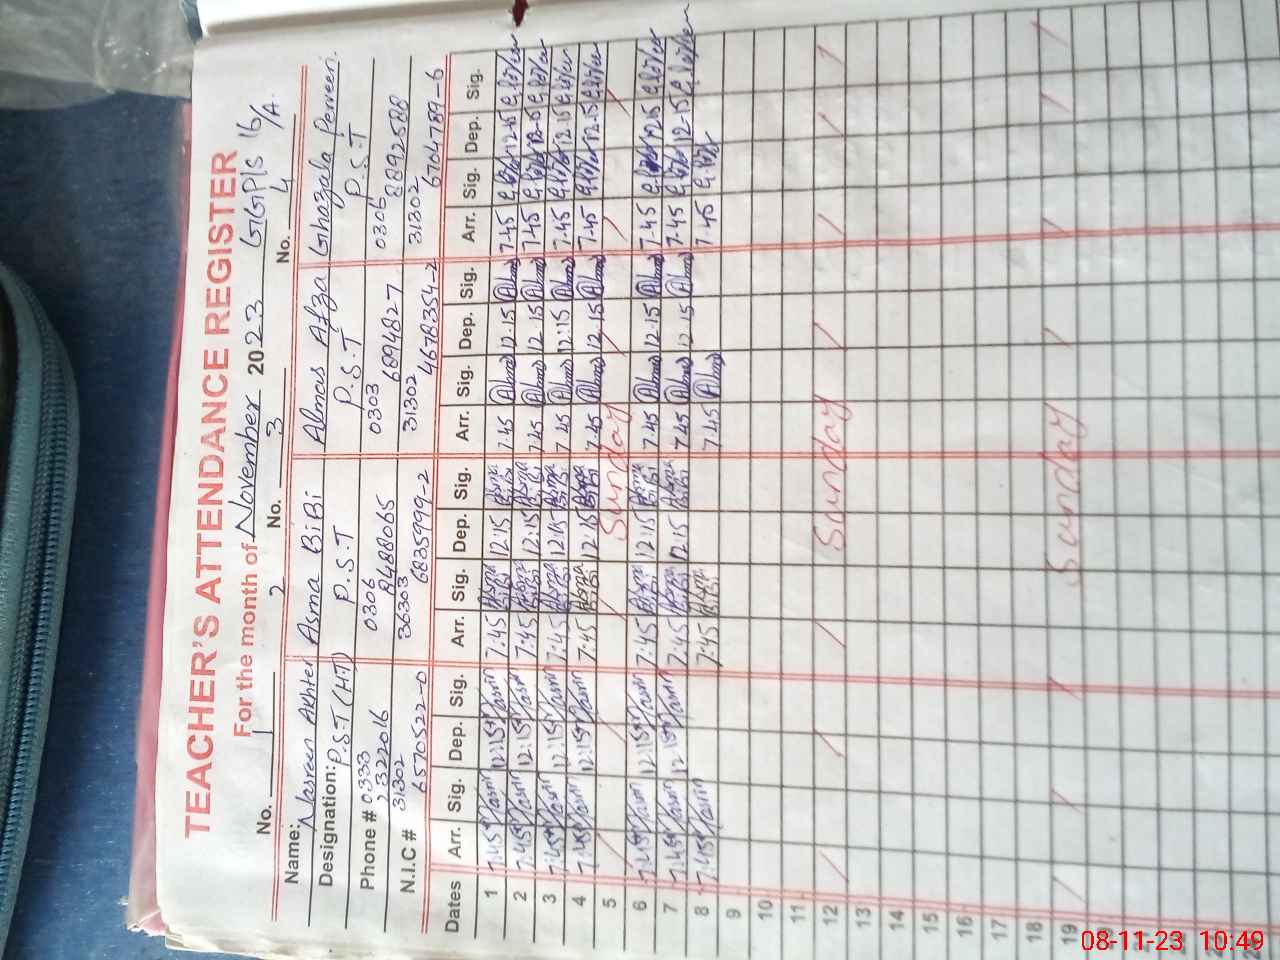 TEACHER'S ATTENDANCE REGISTER
For the month of November 2023 GGPS 16/A.
No. 1 2 No. 3 No. 4
Name: Nasreen Akhter Asma BiBi Almas Afza Ghazala Perveen.
Designation: P.S.T (HT) P.S.T P.S.T P.S.T
Phone # 0333 0306 0303 0306
2322016 8488065 6694827 8892588
N.I.C # 31302 36303 31302 31302
6570522-0 6835999-2 4678354-2 6704789-6
Dates Arr. Sig. Dep. Sig. Arr. Sig. Dep. Sig. Arr. Sig. Dep. Sig. Arr. Sig. Dep. Sig.
1 7:45 12:15 7:45 Asma BiBi 12:15 Asma BiBi 7.45 12.15 7.45 12-15
2 7:45 12:15 7:45 Asma BiBi 12:15 Asma BiBi 7.45 12.15 7.45 12-15
3 7:45 12:15 7:45 Asma BiBi 12:15 Asma BiBi 7.45 12:15 7.45 12.15
4 7:45 12:15 7:45 Asma BiBi 12:15 Asma BiBi 7.45 12.15 7.45 12.15
5 Sunday
6 7:45 12:15 7:45 Asma BiBi 12:15 Asma BiBi 7.45 12.15 7.45 12.15
7 7:45 12:15 7:45 Asma BiBi 12:15 Asma BiBi 7.45 12.15 7.45 12-15
8 7:45 7:45 Asma BiBi 7.45 7.45
9
10
11
12 Sunday
13
14
15
16
17
18
19 Sunday
08-11-23 10:49